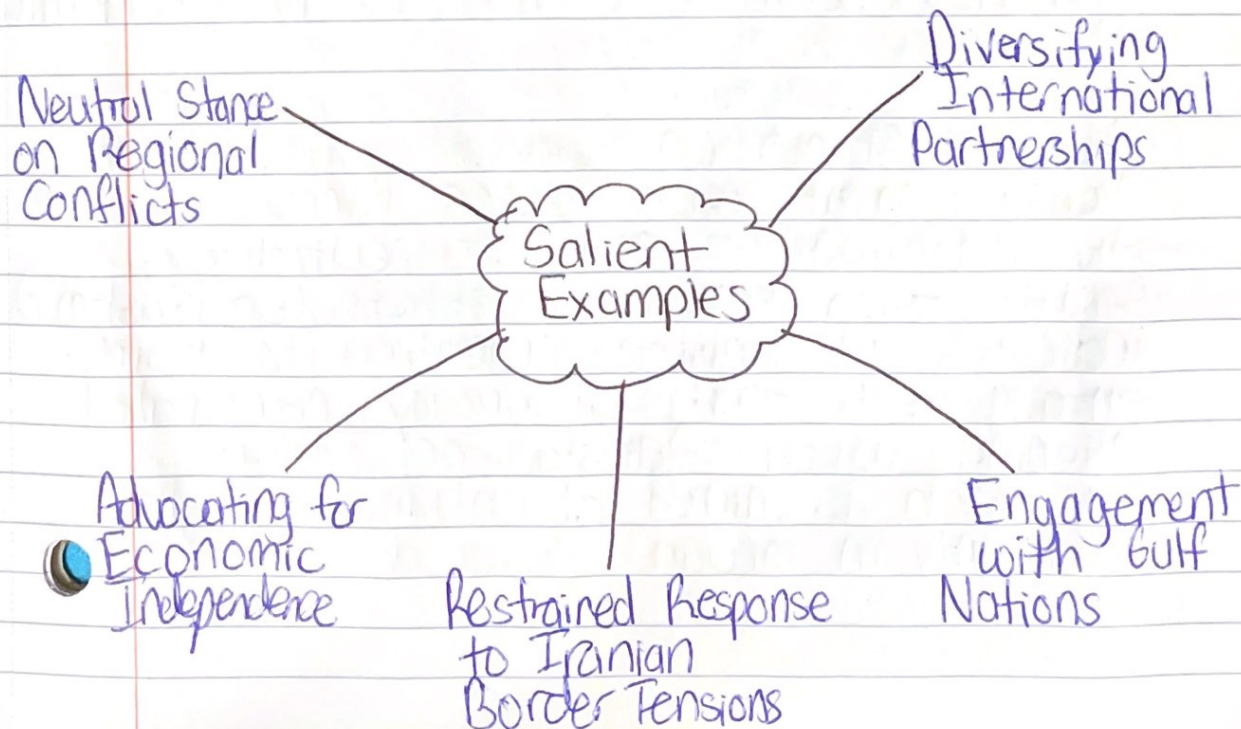 Neutral Stance
on Regional
Conflicts
Diversifying
International
Partnerships
Salient
Examples
Advocating for
Economic
Independence
Restrained Response
to Iranian
Border Tensions
Engagement
with Gulf
Nations